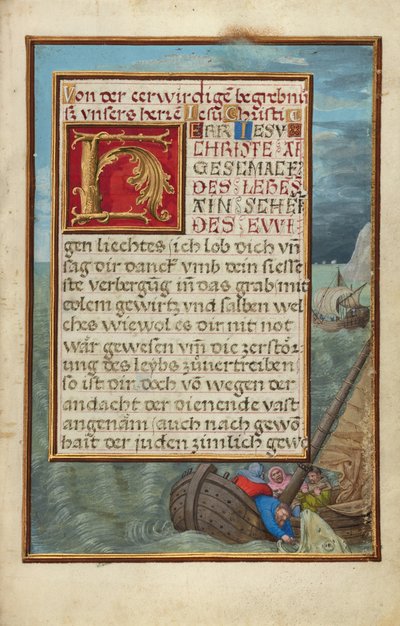 Von der eerwirdigē begrebnü
sz vnsers herrē Iesu Christi
HERR IESV
CHRISTE AI
GESCMACK
DES LEBES
AIN SCHEF
DES EVVI
gen liechtes ich lob dich vñ
sag dir danck vmb dein siesse
ste vergergūg in das grab mit
edlem gewirtz vnd salben wel
ches wiewol es dir mit not
wär gewesen vm̄ die zerstör
ung des leybs züuertreiben
so ist dir doch vō wegen der
andacht der dienende vast
angenäm (auch nach gewō
hait der juden zimlich gewe